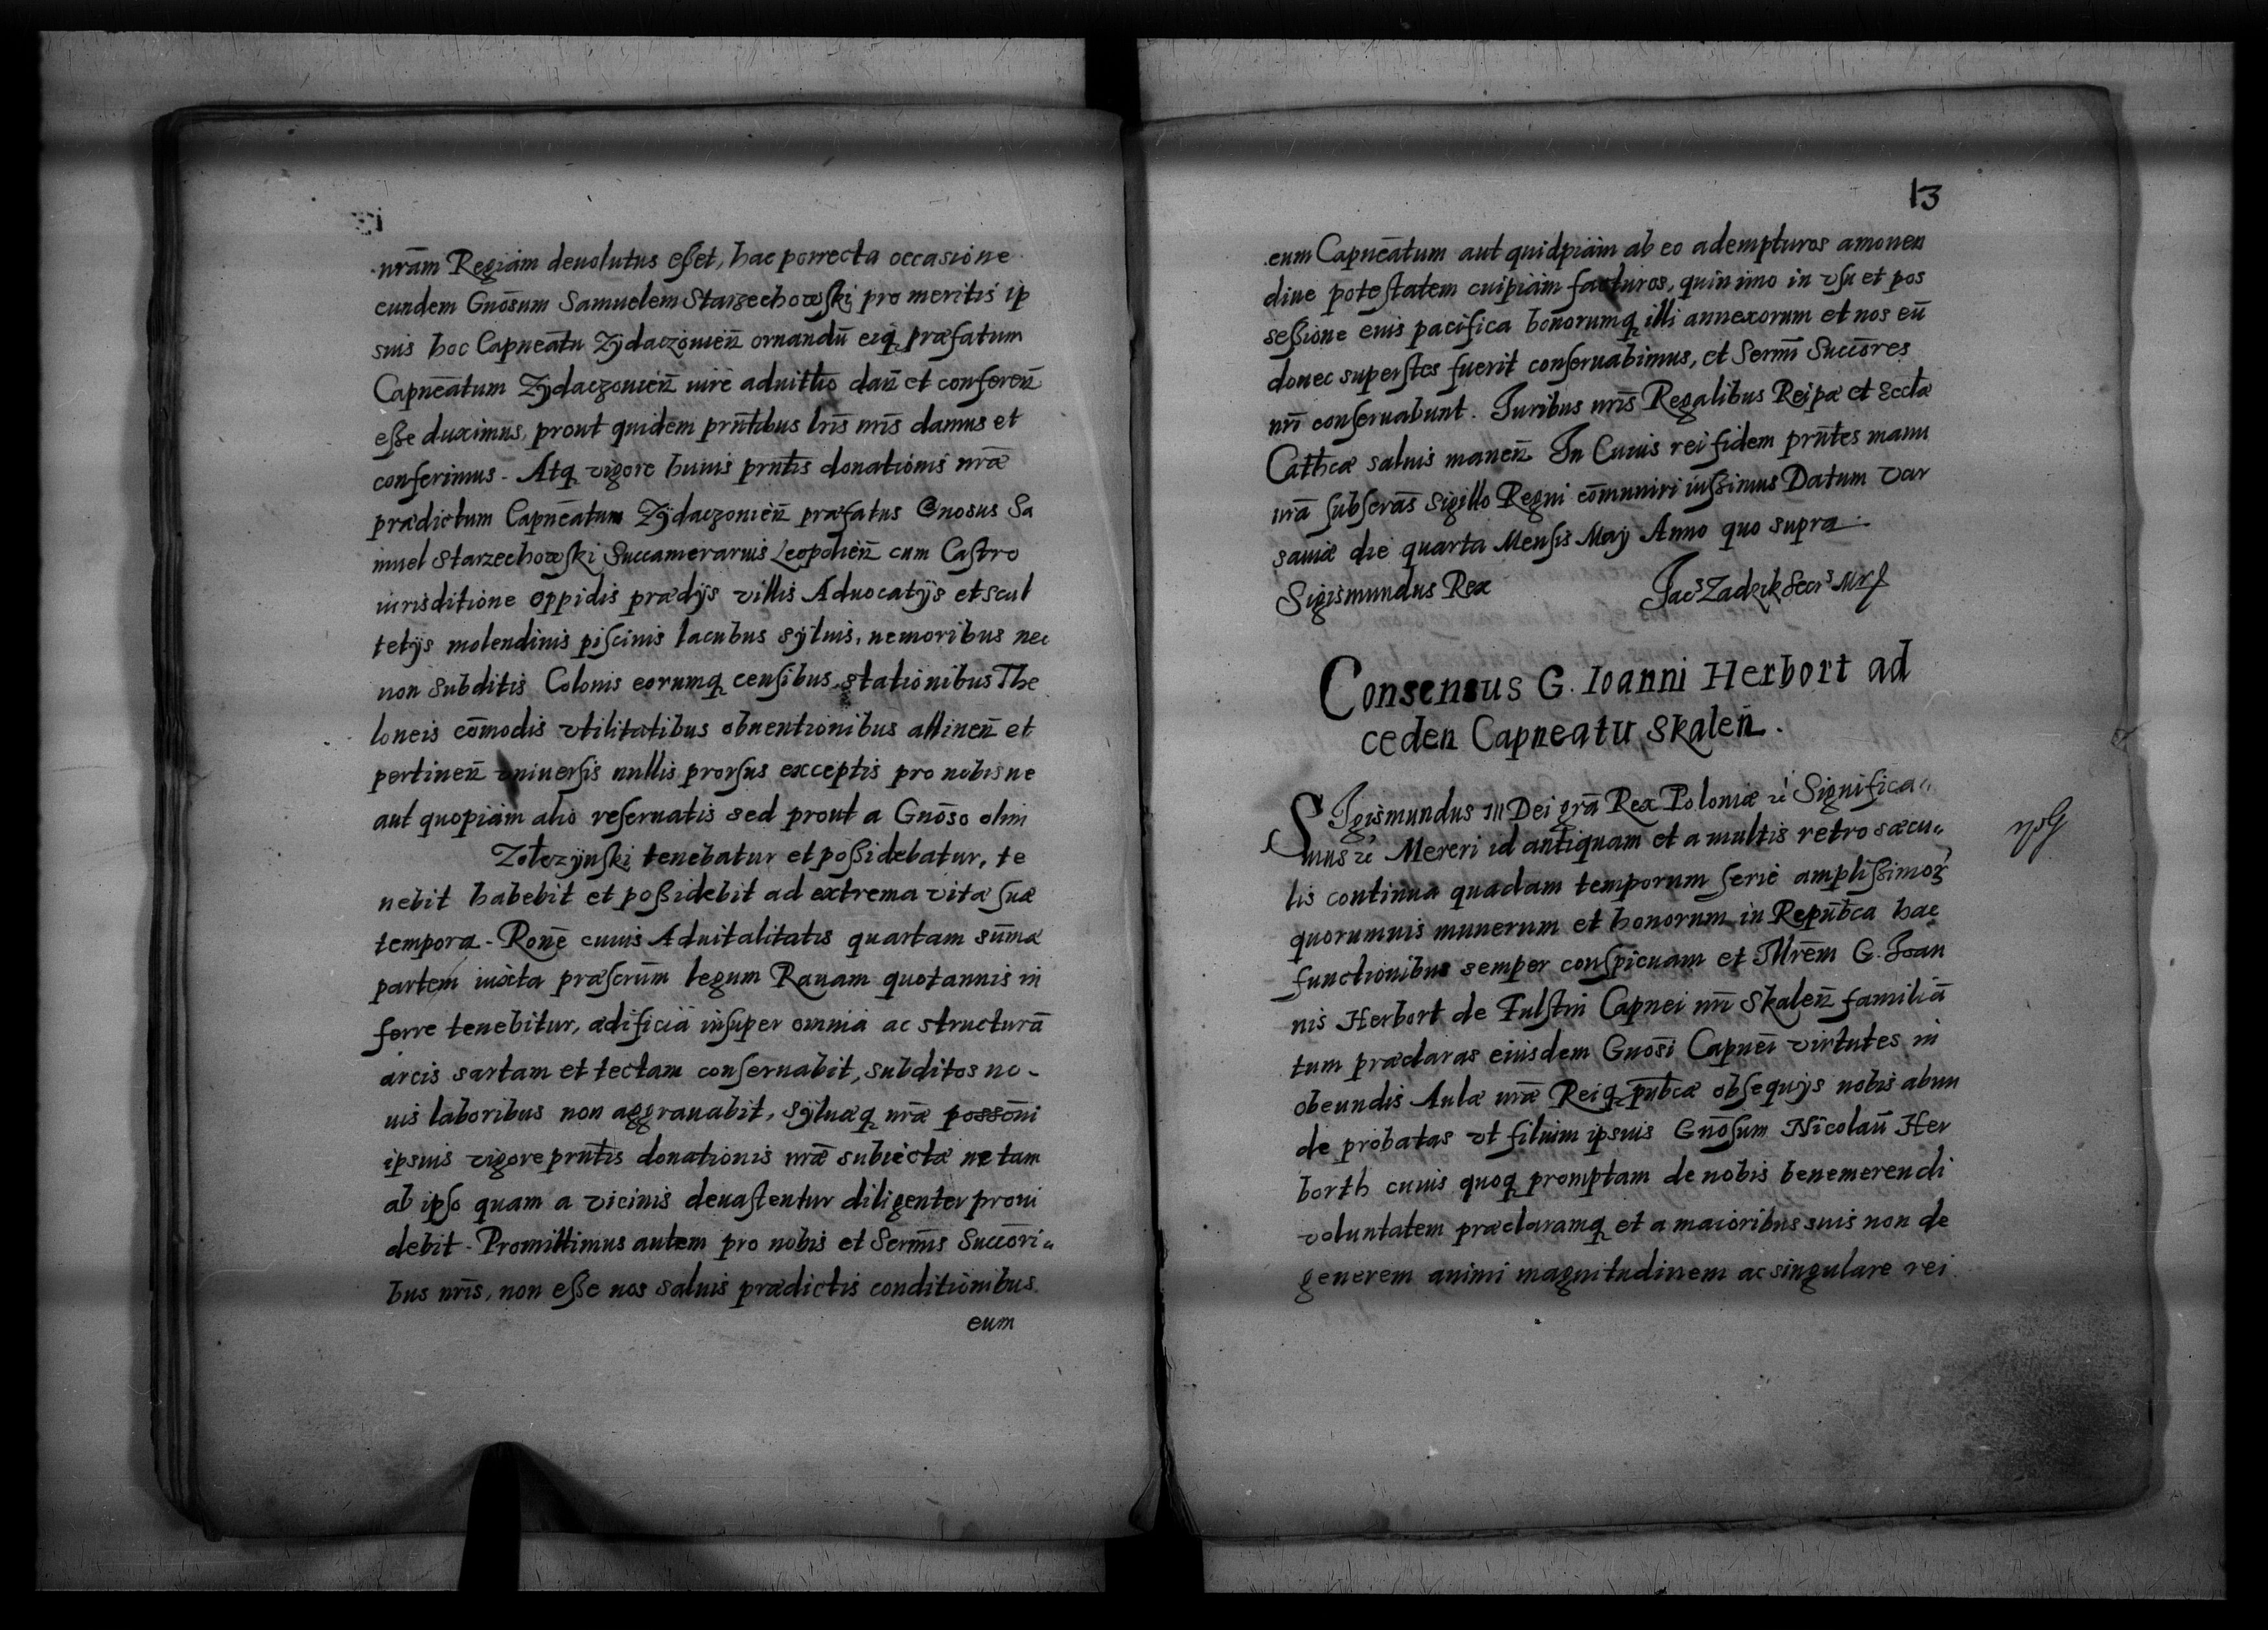 nr̄am Regiam deuolutus eſset, hac porrecta occasione
eundem Gnōsum Samuelem Starzechowſki pro meritis ip
suis hoc Capneātu Zÿdaczouien̄ ornandū eiq₃ præfatum
Capneātum Zÿdaczouien̄ iure aduitltō dan̄ et conferen̄
eſse duximus, prout quidem prn̄tibus lrīs nrīs damus et
conferimus. Atq₃ vigore huius prn̄tis donationis nrǣ
prædictum Capneātum Zÿdaczouien̄ præfatus Gnosus Sa
muel Starzechowſki Succamerarius Leopolien̄ cum Caſtro
iurisditione oppidis prædÿs villis Aduocatÿs et scul
tetÿs molendinis piſcinis lacubus sÿluis, nemoribus nec
non Subditis Colonis eorumq₃ cenſibus, stationibus The
loneis cōmodis vtilitatibus obuentionibus attinen̄ et
pertinen̄ vniuerſis nullis prorſus exceptis pro nobis ne
aut quopiam alio reſeruatis sed prout a Gnōso olim
Zołczÿnſki tenebatur et poſsidebatur, te
nebit habebit et poſsidebit ad extrema vitæ ſuæ
tempora. Ronē cuius Aduitalitatis quartam sūmæ
partem iuxta præſcrūm legum Rauam quotannis in
ferre tenebitur, ædificia inſuper omnia ac structurā
arcis sartam et tectam conſeruabit, subditos no-
uis laboribus non aggrauabit, sÿluæq₃ nrǣ possōni
ipsuis vigore prn̄tis donationis nrǣ subiectæ ne tam
ab ipſo quam a vicinis deuaſtentur diligenter proui
debit. Promittimus autem pro nobis et Serm̄is Succōri„
bus nrīs, non eſse nos saluis prædictis conditionibus
eum
13
eum Capneātum aut quidpiam ab eo adempturos amouen
diue poteſtatem cuipiam facturos, quin imo in vſu et pos
seſsione euis pacifica bonorumq₃ illi annexorum et nos eū
donec superſtes fuerit conſeruabimus, et Serm̄i Succōres
nrī conſeruabunt. Iuribus nrīs Regalibus Reipæ et Eccłæ
Cathcæ saluis manen̄ In Cuius rei fidem prn̄tes manu
nrā ſubſcrās Sigillo Regni cōmuniri iuſsimus Datum Var
sauiæ die quarta Menſis Maÿ Anno quo supra.
Sigismundus Rex
Jacˢ Zadzik Secrˢ
Consensus G. Ioanni Herbort ad
ceden Capneatu Skalen̄.
SIgismundus III Dei grā Rex Poloniæ zc̄ Significa„
mus zc̄ Mereri id antiquam et a multis retro sæcu„
lis continua quadam temporum ſerie ampliſsimoꝝ
quorumuis munerum et honorum in Repūbca hac
functionibus semper conſpicuam et Illrēm G. Ioan
nis Herbort de Fulſtin Capnei nrī Skalen̄ familiā
tum præclaras eiusdem Gnōsi Capneī virtutes in
obeundis Aulæ nrǣ Reiq₃ pūbcæ obſequÿs nobis abun
de probatas vt filium ipsuis Gnōſum Nicolaū Her
borth cuius quoq₃ promptam de nobis benemerendi
voluntatem præclaramq₃ et a maioribus suis non de
generem animi magnitudinem ac singulare rei